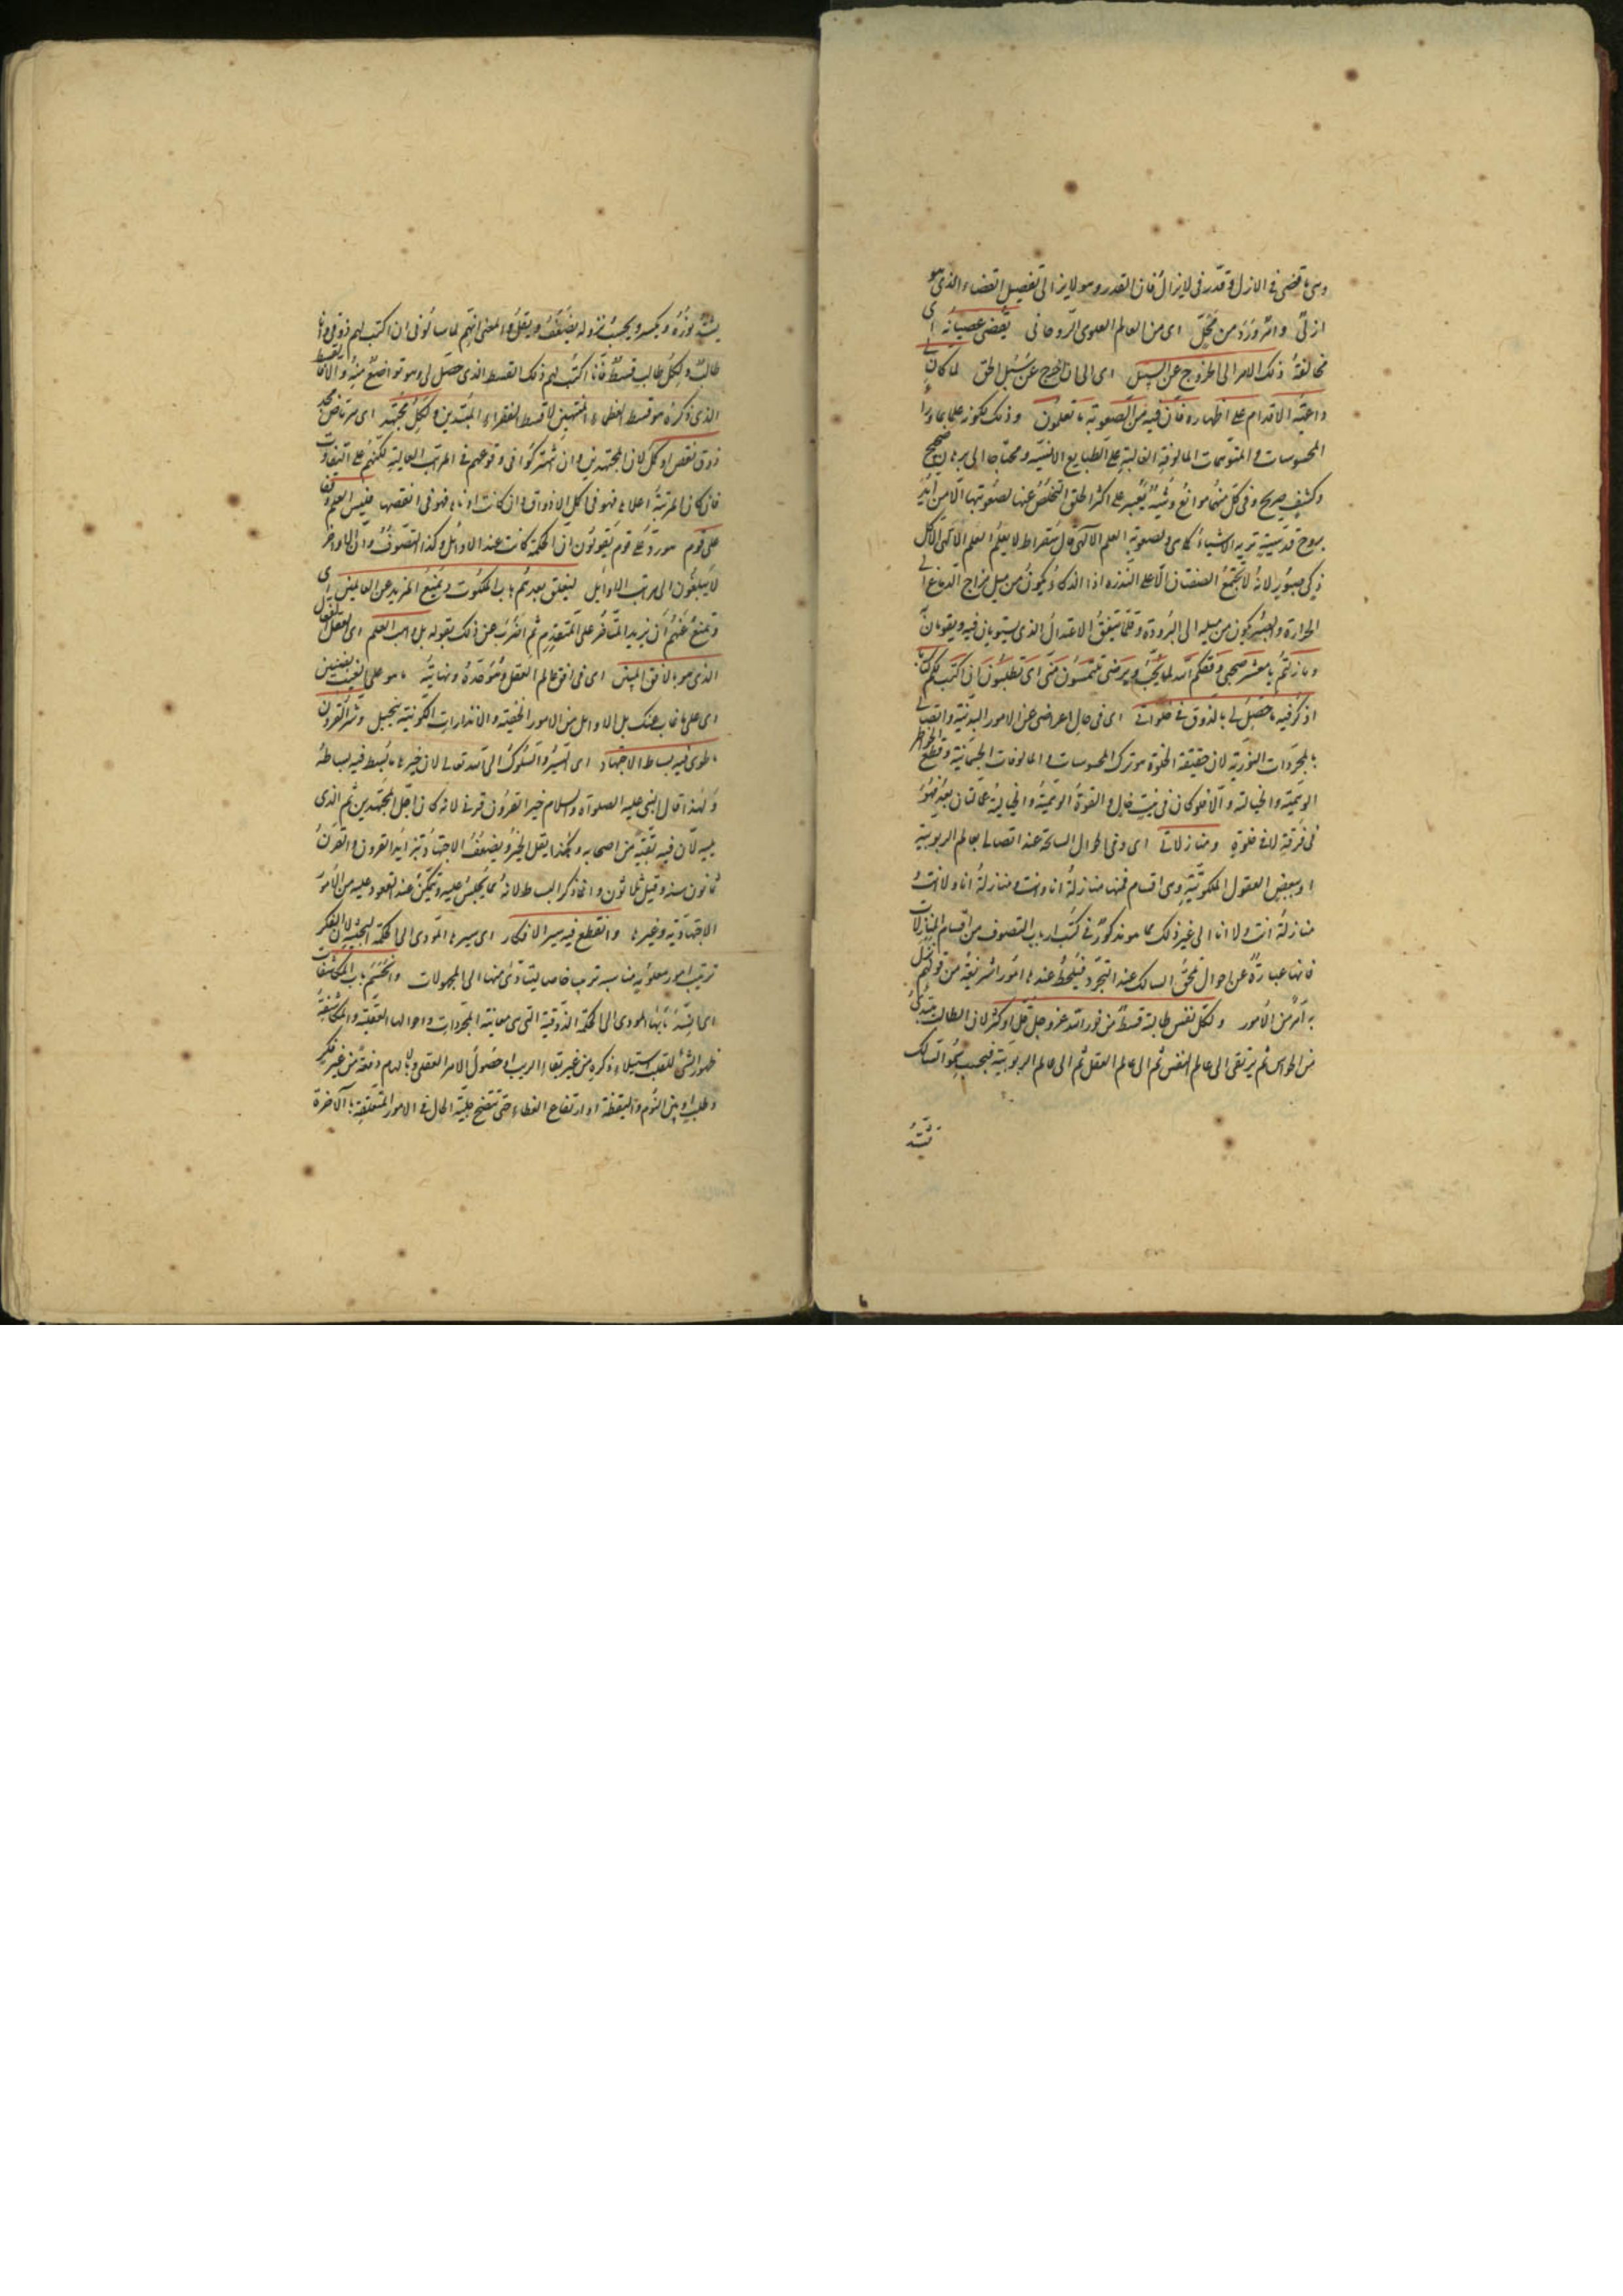 وهى ما قضى فى الازل وقدّر فى لا يزال فان القدر وهو لا يزالى تفصيل القضاء الذى هو
ازلىّ وامر وَرَدَ من مَحَلّ اى من العالم العلوى الروحانى يُفضى عصيانُه اى
مخالفةُ ذلك الامر الى الخروج عن السبيل اى الى ان اخرج عن سُبُل الحق لما كان لى
داعيّة الاقدام على اظهاره فانّ فيه من الصعوبة ما تعلمون وذلك لكونه على ما وراء
المحسوسات والمتوهمات المالوفة الغالبة على الطبايع الانسيّة ومحتاجا الى برهان صحيح
وكشف صريح وفى كلّ منهما موانعُ وشُبَهٌ يَعْسر على اكثر الخلق التخلّصُ عنها لصُعُوبتها الّا من اُيّد
بروح قدسيّة تريه الاشياءَ كما هى ولصعوبة العلم الآلهى قال سقراط لا يعلم العلم الآلهى الّا كل
ذكىّ صبور لانهُ لا يجتمعُ الصفتان الّا على النّدره اذ الذكاءُ يكون من ميل مزاج الدماغ الى
الحرارة والصبرُ يكون من ميله الى البرُودة وقلّما يتّفق الاعتدالُ الذى يستويان فيه ويقومان به
وما زلتُم يا معشر صحبى وفقكم الله لما يُحبّ ويرضى تلتمسُون منّى اى تطلبُون ان اكتب لكم كتابا
اذكرُ فيه ما حَصَلَ لى بالذوق فى خلواتى اى فى حال اعراضى عن الامور البدنيّة واتصالى
بالمجرّدات النّورية لان حقيقة الخلوة هو ترك المحسوسات والمالوفات الجسمانيّة وقطع الخواطر
الوهميّة والخياليّة والّا فلو كان فى بيتٍ خالٍ والقوةُ الوهميّةُ والخياليّةُ عمّالتان بعدُ فهُو
فى فُرقةٍ لا فى خلوةٍ ومنازلاتى اى وفى احوالى السانحة عند اتصالى بعالم الربوبية
او ببعض العقول الملكوتيّة وهى اقسام فمنها منازلةُ انا وانت ومنازلةُ انا ولا انت و
منازلةُ انت ولا انا الى غير ذلك مما هو مذكورٌ فى كتب ارباب التصوف من اقسام المنازلات
فانها عبارةٌ عن احوالٍ تلحقُ السالك عند التجرّد فيلحظ عندها امُورا شريفةً من قولهم نَزَلَ
به امرٌ من الامُور ولكل نفس طالبة قسطٌ من نور الله عزّ وجلّ قلّ او كثر لان الطالب يبتدىُ
من الحواس ثم يرتقى الى عالم النفس ثم الى عالم العقل ثم الى عالم الربوبيّة فبحسب سُموّ السالك
يشتدّ
يشتدّ نورُهُ ويكثر وبحسب نزوله يضعُفُ ويقلُّ والمعنى انهم لما سالونى ان اكتب لهم ذوقى وانا
طالب ولكل طالب قسطٌ فانا اكتبُ لهم ذلك القسط الذى حصل لى وهو تواضعٌ منهُ والّا فالقسط
الذى ذكره هو قسط العظماء المنتهين لا قسط الفقراء المبتدين ولكل مجتهد اى مرتاض مجدّ
ذوق نقص او كمل لان المجتهدين وان اشتركوا فى وقوعهم فى المراتب العالية لكنهم على التفاوت
فان كان المرتبةُ اعلاها فهو فى اكمل الاذواق وان كانت ادناها فهو فى انقصها فليس العلم وقفا
على قوم هو ردّ على قوم يقولون ان الحكمة كانت عند الاوائل وكذا التصوف وان الاواخر
لا يبلغون الى مراتب الاوايل ليُغلق بعدهم باب الملكوت ويُمنع المزيد عن العالمين اى
ويُمنعُ عنهُم ان يزيد المتأخّر على المتقدم ثم اضرب عن ذلك بقوله بل واهب العلم اى العقل الفعال
الذى هو بالافق المبين اى فى افق عالم العقل وهُو حدّهُ ونهايتُه ما هو على الغيب بضنين
اى على ما غاب عنك بل الاوائل من الامور الخفية والانذارات الكونيّة ببخيل وشرّ القرون
ما طوى فيه بساط الاجتهاد اى السّيرُ والسلوكُ الى الله تعالى لان خيرها ما بُسط فيه بساطه
ولهذا قال النبى عليه الصلوة والسلام خير القرون قرنى لانه كان اجلّ المجتهدين ثم الذى
يليه لان فيه بقيّة من اصحابه وهكذا يقل الخيرُ ويضعفُ الاجتهادُ بتزايُد القرون والقرنُ
ثمانون سنة وقيل ثلاثون وانما ذكر البساط لانهُ مما يُجلسُ عليه ويُتمكّنُ عند القعود عليه من الامور
الاجتهاديّه وغيرها وانقطع فيه سير الافكار اى سيرها المؤدى الى الحكمة البحثيّة لان الفكر
ترتيب امور معلومة مناسبة ترتيب خاص ليتادّىٰ منها الى المجهولات وانحسم باب المكاشفات
اى انسدّ بابُها المودى الى الحكمة الذوقية التى هى معاينة المجردات واحوالها العقليّة والمكاشفةُ
ظهورُ الشئ للقلب باستيلاء ذكره من غير بقاء الريب او حصُولُ الامر العقلى بالالهام دفعةً من غير فكرٍ
وطلب او بين النّوم واليقظة او ارتفاع الغطاء حتى تتضح جليّة الحال فى الامور المتعلقة بالآخرة